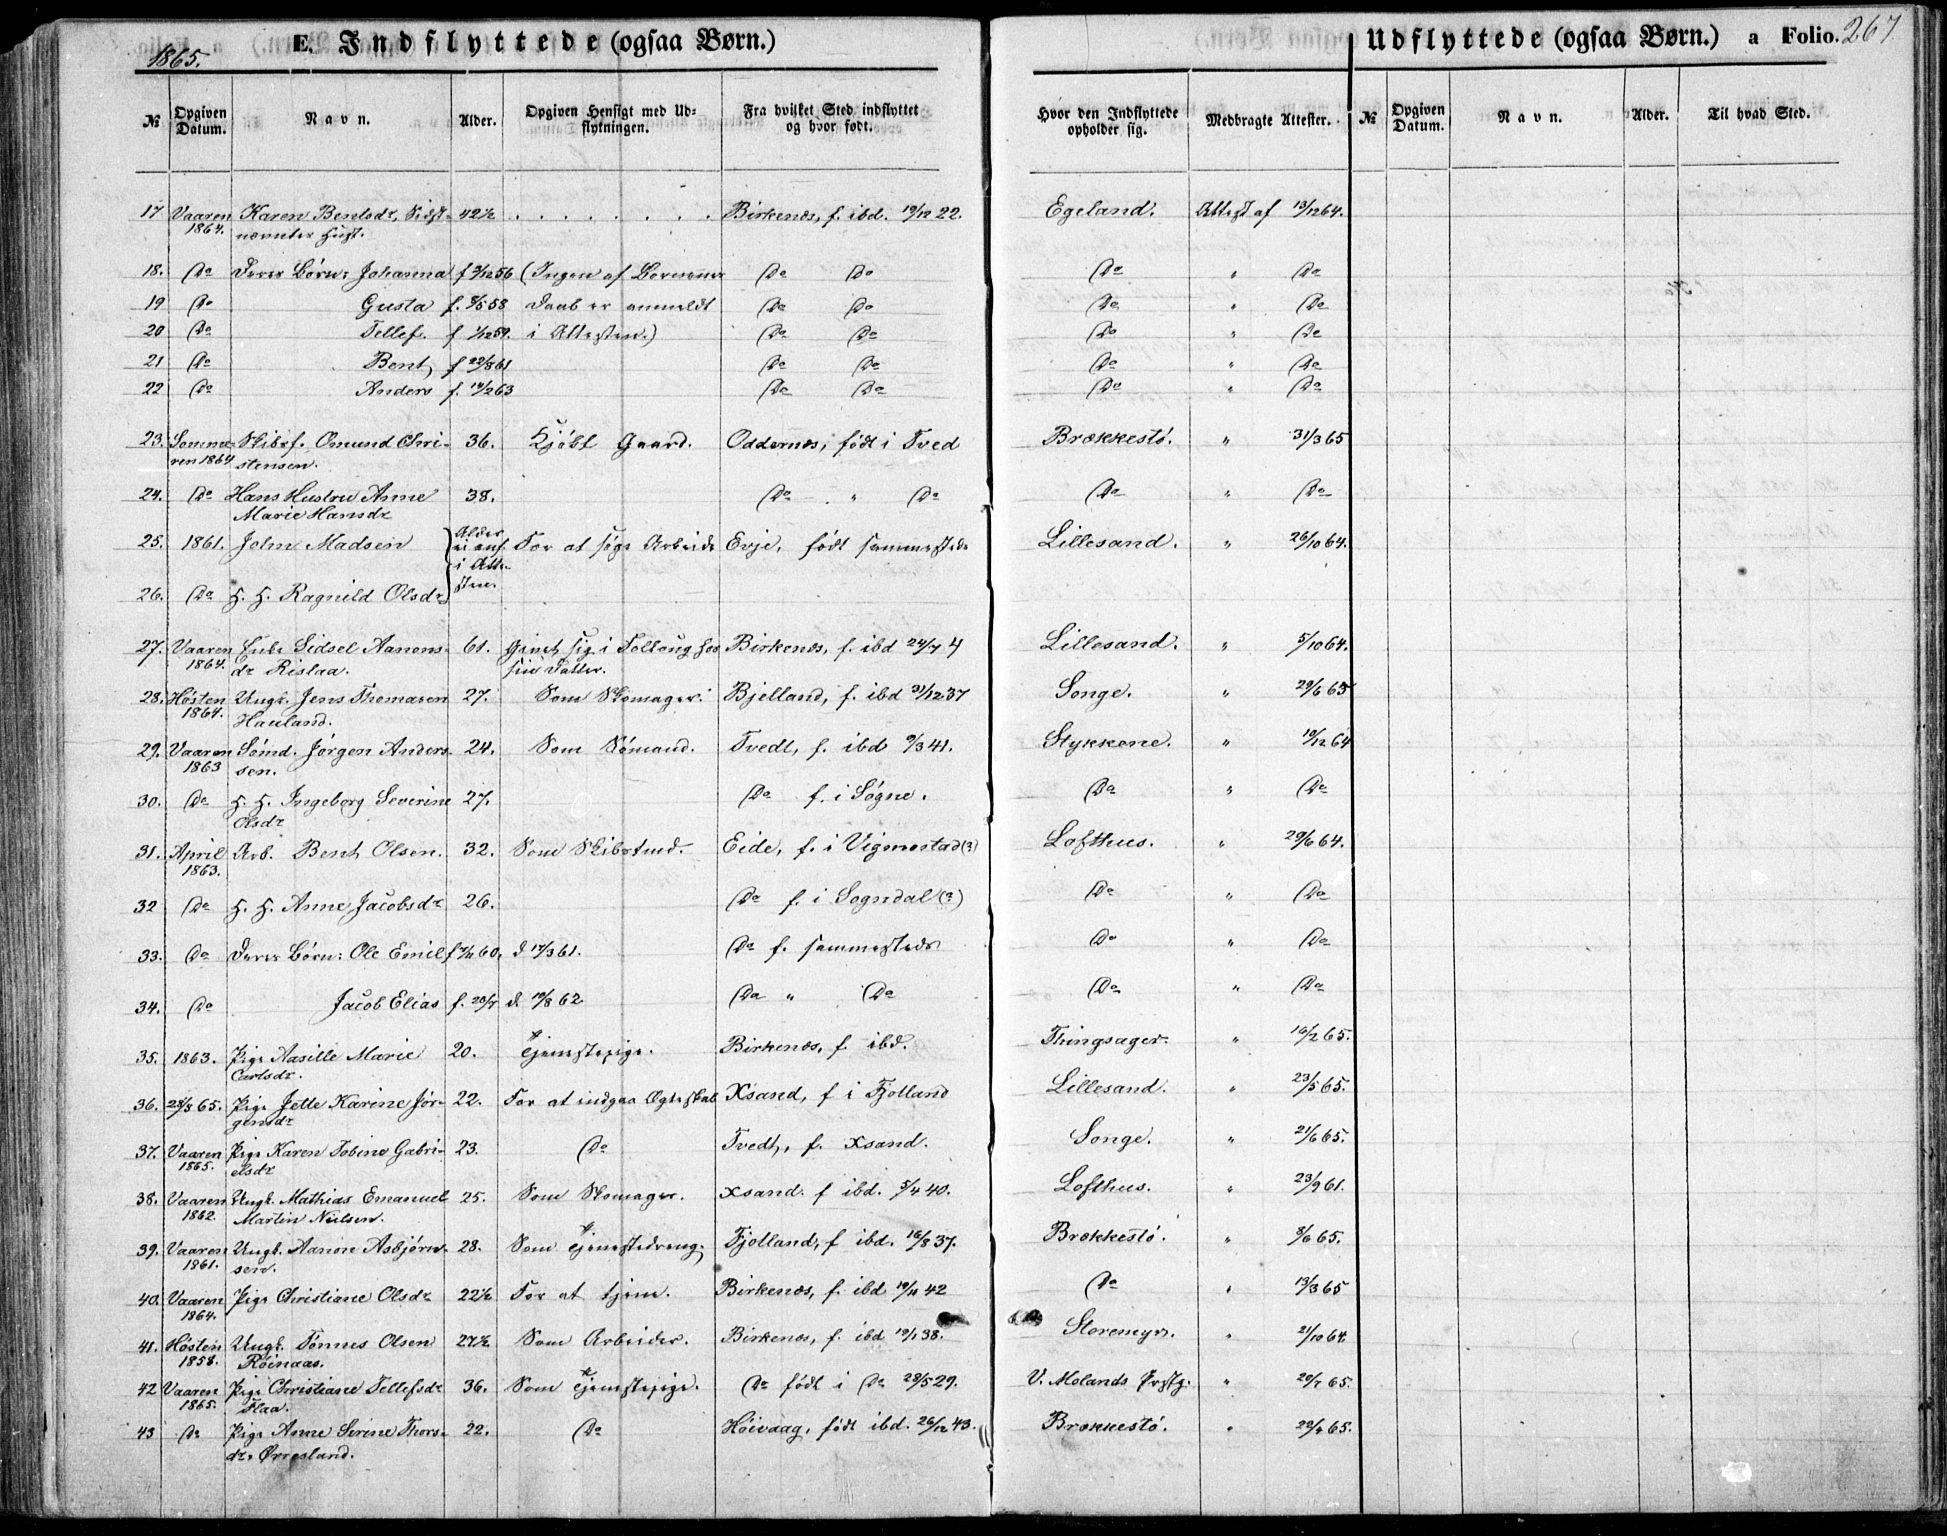 1865.
E. Indflyttede (ogsaa Børn.)
Udflyttede (ogsaa Børn.) a Folio. 267
№ Opgiven Datum. Navn. Alder. Opgiven Hensigt med Udflytningen. Fra hvilket Sted indflyttet og hvor født. Hvor den Indflyttede opholder sig. Medbragte Attester. № Opgiven Datum. Navn. Alder. Til hvad Sted.
17 Vaaren Karen Bentsdr, Sidst- 42½ . . . . . . . Birkenæs, f. ibd. 19/12 22. Egeland. Attest af 13/12 64.
1864. nævntes Hust.
18. Do Deres Børn: Johanna f 3/12 56 (Ingen af Børnenes Do Do Do " Do
19 Do Gusta f. 8/5 58 Daab er anmeldt Do Do Do " Do
20 Do Tellef. f 1/12 59. i Attesten.) Do Do Do " Do
21 Do Bent, f 22/8 61 Do Do Do " Do
22 Do Anders f. 14/2 63 Do Do Do " Do
23. Somme- Skibsf. Omund Chri- 36. Kjøbt Gaard. Oddernæs, født i Tved Brækkestø. " 31/3 65
ren 1864 stensen.
24. Do Hans Hustru Anne 38. Do " Do Do " Do
Marie Hansdr
25. 1861. John Madsen Alder ei anf. i Atte- sten. For at søge Arbeide Evje, født sammesteds Lillesand. " 26/10 64.
26. Do H. H. Ragnild Olsdr
27. Vaaren Enke Sidsel Aanons- 61. Givet sig i Folloug hos Birkenæs, f. ibd 24/7 4 Lillesand. " 5/10 64.
1864. dr Rislaa. sin Datter.
28. Høsten Ungk. Jens Thomasen 27. Som Skomager. Bjelland, f. ibd 31/12 37 Songe. " 29/6 65
1864. Hauland.
29. Vaaren Sømd. Jørgen Anders- 24. Som Sømand. Tvedt, f. ibd 9/3 41. Stykkene. " 10/12 64
1863 sen.
30. Do H. H. Ingeborg Severine 27. Do f. i Søgne. Do " Do
Olsdr
31. April Arb. Bent Olsen. 32. Som Skibstmd. Eide, f. i Vigmostad (?) Lofthus. " 29/6 64.
1863.
32 Do H. H. Anne Jacobsdr 26. Do f. i Sogndal (?) Do " Do
33. Do Deres Børn: Ole Emil f 7/11 60, d 17/3 61. Do f. sammesteds Do " Do
34. Do Jacob Elias f. 20/7 d. 10/8 62 Do " Do Do " Do
35. 1863. Pige Aasille Marie 20. Tjenestepige. Birkenæs, f. ibd. Thingsager. " 16/2 65.
Carlsdr.
36. 28/5 65. Pige Jette Karine Jør- 22. For at indgaa Ægteskab Xsand, f i Fjotland Lillesand. " 23/5 65.
gensdr
37. Vaaren Pige Karen Tobine Gabri- 23. Do Tvedt, f. Xsand. Songe. " 21/6 65.
1865. elsdr
38. Vaaren Ungk. Mathias Emanuel 25. Som Skomager. Xsand. f ibd. 5/4 40. Lofthus. " 23/9 61.
1862. Martin Nielsen.
39. Vaaren Ungk. Aanon Asbjørn- 28. Som Tjenestedreng, Fjotland, f ibd. 16/8 37. Brækkestø. " 8/6 65.
1861. sen.
40. Vaaren Pige Christiane Olsdr 22½ For at tjene. Birkenæs, f. ibd 19/11 42 Do " 13/3 65
1864.
41. Høsten Ungk. Tønnes Olsen 27½ Som Arbeider. Birkenæs, f. ibd 19/1 38. Storemyr. " 21/10 64.
1858. Røinaas.
42 Vaaren Pige Christiane Tellefsdr 36. Som Tjenestepige. Do født i Do 28/5 29. V. Molands Prstg. " 20/7 65.
1865. Flaa.
43 Do Pige Anne Serine Thors- 22. Do Høivaag, født ibd. 26/12 43. Brækkestø. " 22/7 65.
dr. Ørresland.